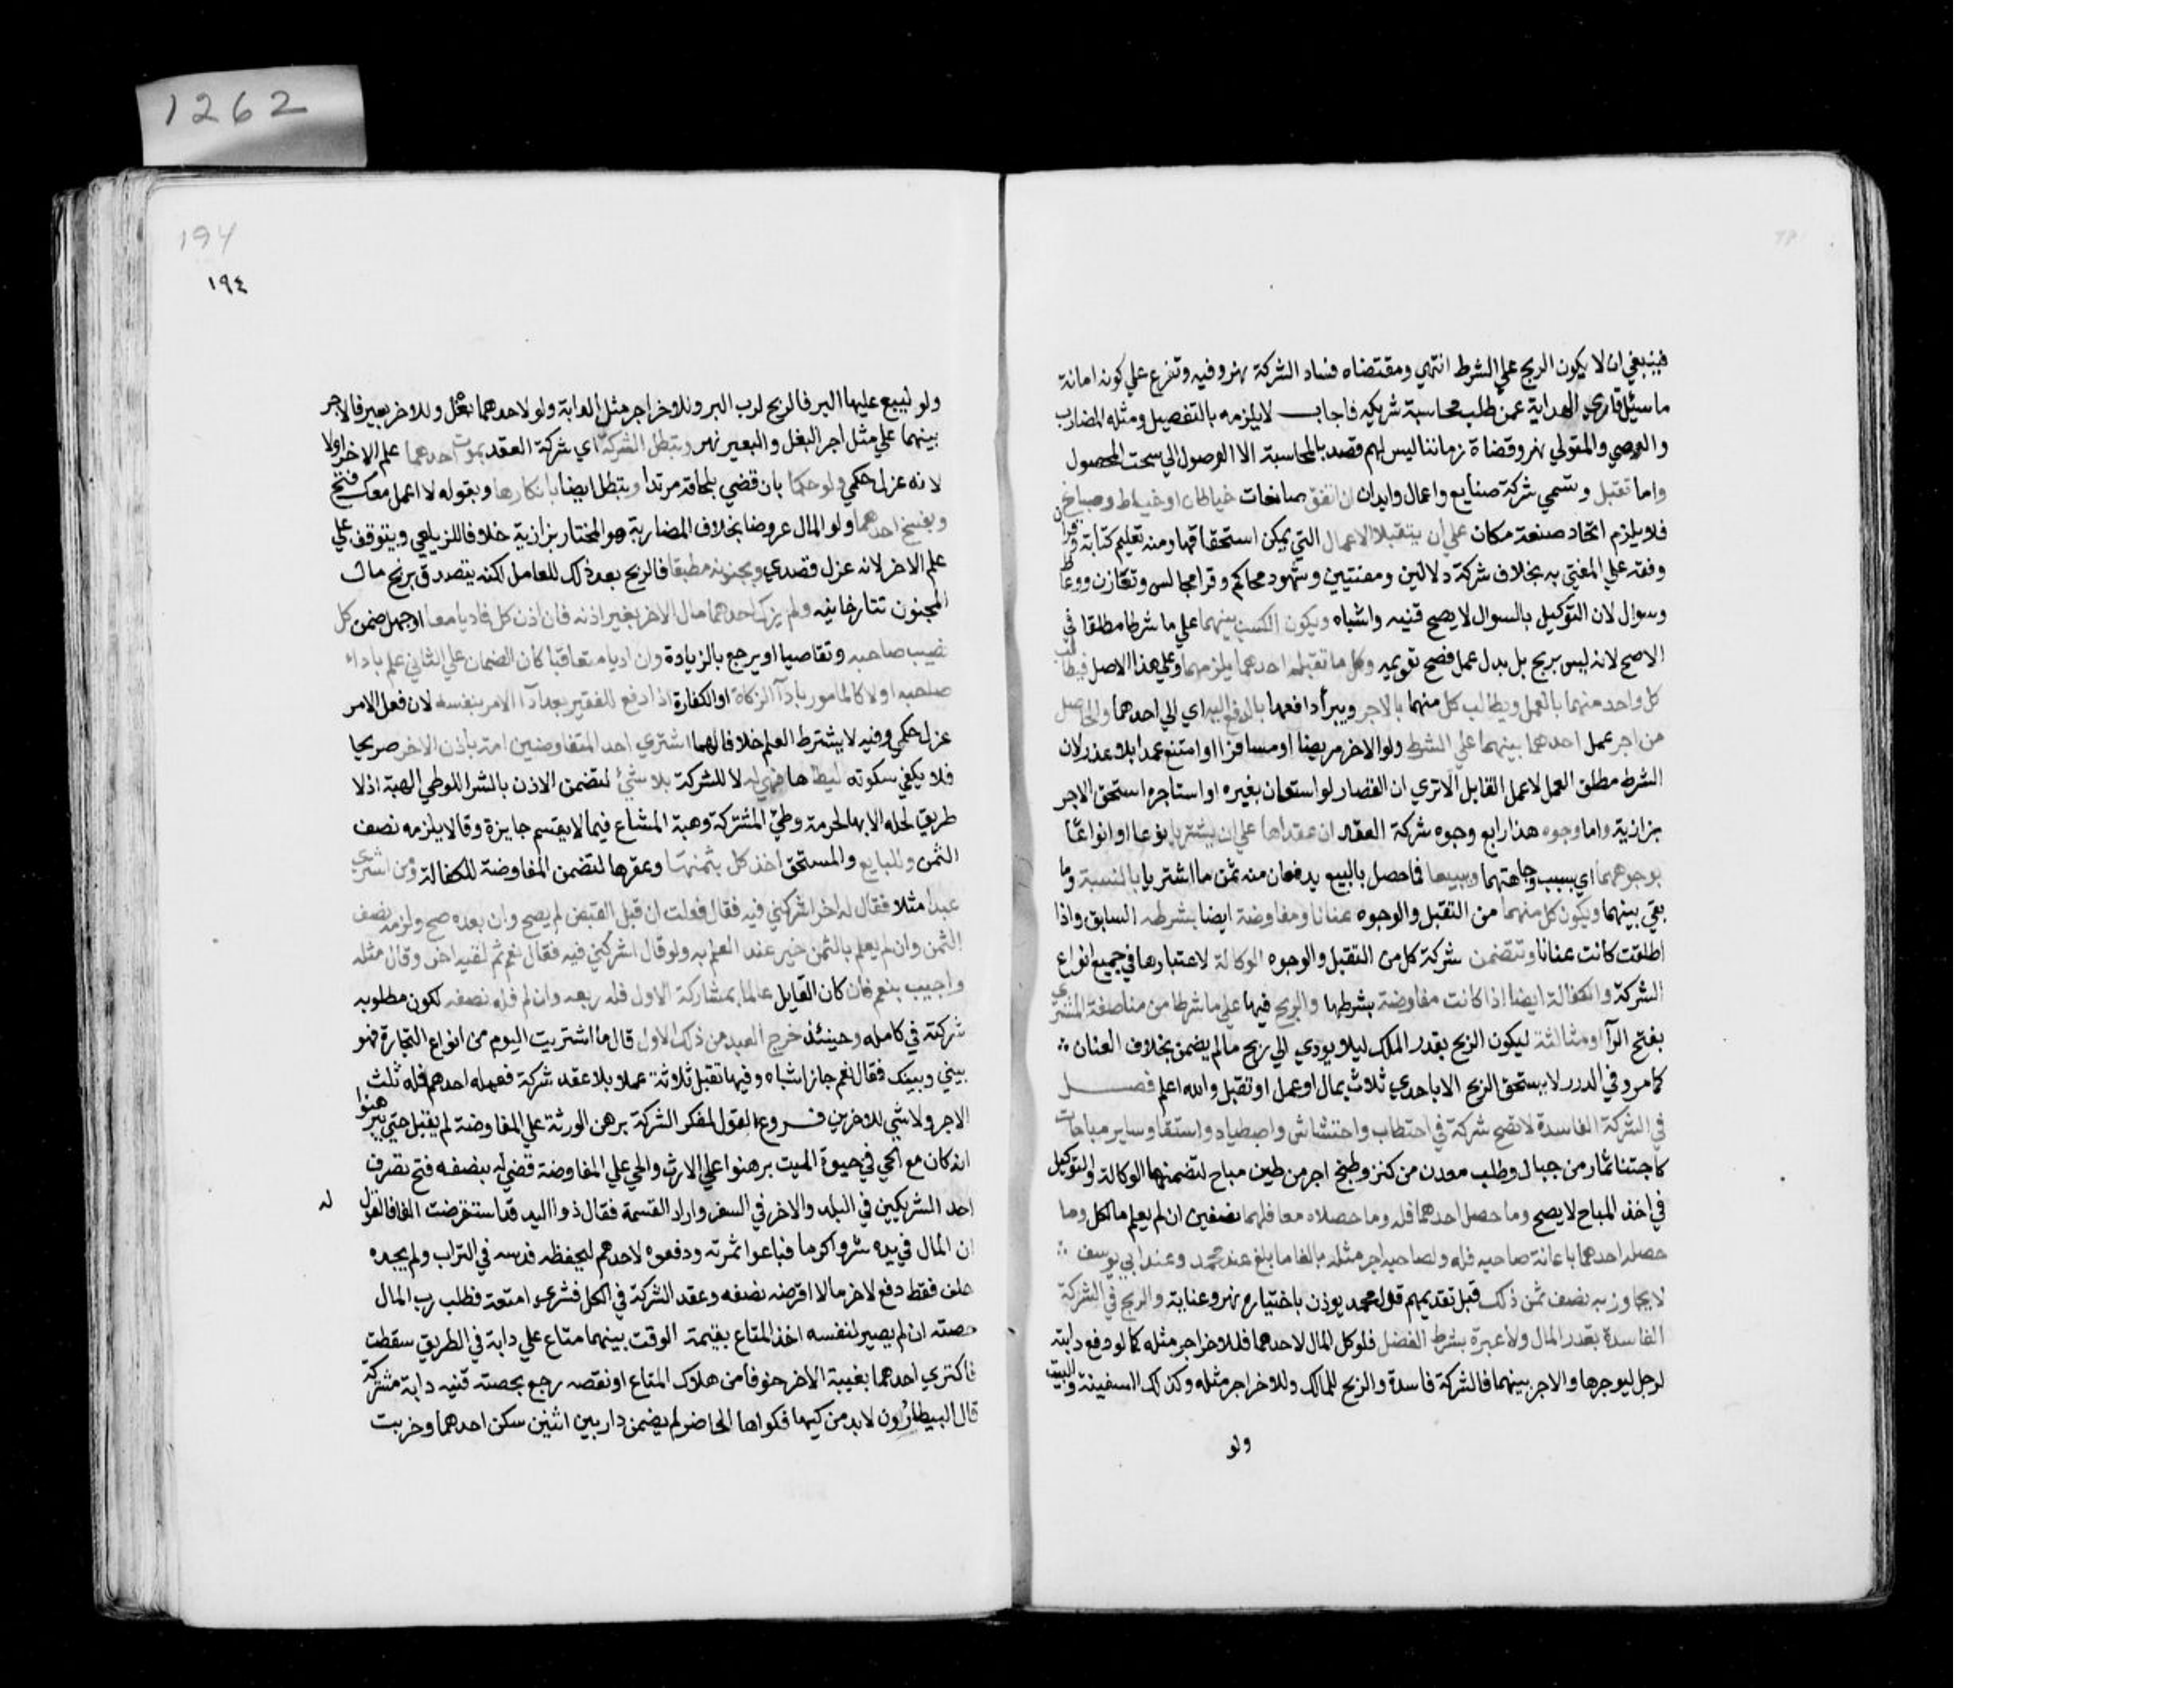 فينبغي ان لا يكون الربح علي الشرط انتهي ومقتضاه فساد الشركة نهر وفيه وتفرع علي كونه امانة
ما سيئل قاري الهداية عمن طلب محاسبة شريكه فاجاب لا يلزمه بالتفصيل ومثله المضارب
والوصي والمتولي نهر وقضاة زماننا ليس لهم قصد بالمحاسبة الا الوصول الي سحت المحصول
واما تقبل وتسمي شركة صنايع واعمال وابدان ان اتفق صانعان خياطان او خياط وصباغ
فلا يلزم اتحاد صنعة ومكان علي ان يتقبلا الاعمال التي يمكن استحقاقها ومنه تعليم كتابة وقران
وفقه علي المفتي به بخلاف شركة دلالين ومفتيين وشهود محاكم وقرا مجالس وتعازن ووعاظ
وسوال لان التوكيل بالسوال لا يصح قنيه واشباه ويكون الكسب بينهما علي ما شرطا مطلقا في
الاصح لانه ليس بربح بل بدل عمل فصح تقويمه وكل ما تقبله احدهما يلزمهما وعلي هذا الاصل فيطالب
كل واحد منهما بالعمل ويطالب كل منهما بالاجر ويبرأ دافعها بالدفع اليه اي الي احدهما والحاصل
من اجر عمل احدهما بينهما علي الشرط ولو الاخر مريضا او مسافرا او امتنع عمدا بلا عذر لان
الشرط مطلق العمل لا عمل القابل الا تري ان القصار لو استعان بغيره او استاجره استحق الاجر
بزازية واما وجوه هذا رابع وجوه شركة العقد ان عقداها علي ان يشتريا نوعا او انواعا
بوجوههما اي بسبب وجاهتهما ويبيعا فما حصل بالبيع يدفعان منه ثمن ما اشتريا بالنسبة وما
بقي بينهما ويكون كل منهما من التقبل والوجوه عنانا ومفاوضة ايضا بشرطه السابق واذا
اطلقت كانت عنانا وتتضمن شركة كل من التقبل والوجوه الوكالة لاعتبارها في جميع انواع
الشركة والكفالة ايضا اذا كانت مفاوضة بشرطها والربح فيها علي ما شرطا من مناصفة المشتري
بفتح الرآ او مثالثة ليكون الربح بقدر الملك ليلا يودي الي ربح ما لم يضمن بخلاف العنان
كما مر وفي الدرر لا يستحق الربح الا باحدي ثلاث بمال او عمل او تقبل والله اعلم فصل
في الشركة الفاسدة لا تصح شركة في احتطاب واحتشاش واصطياد واستقا وساير مباحات
كاجتنا ثمار من جبال وطلب معدن من كنز وطبخ اجر من طين مباح لتضمنها الوكالة والتوكيل
في اخذ المباح لا يصح وما حصل احدهما فله وما حصلاه معا فلهما نصفين ان لم يعلم ما لكل وما
حصله احدهما باعانة صاحبه فله ولصاحبه اجر مثله بالغا ما بلغ عند محمد وعند ابي يوسف
لا يجاوز به نصف ثمن ذلك قبل تقديمهم قول محمد يوذن باختياره نهر وعناية والربح في الشركة
الفاسدة بقدر المال ولا عبرة بشرط الفضل فلو كل المال لاحدهما فللاخر اجر مثله كما لو دفع دابته
لرجل ليوجرها والاجر بينهما فالشركة فاسدة والربح للمالك وللاخر اجر مثله وكذلك السفينة والبيت
ولو
1262
194
١٩٤
ولو ليبيع عليها البر فالربح لرب البر وللاخر اجر مثل الدابة ولو لاحدهما بغل وللاخر بعير فالاجر
بينهما علي مثل اجر البغل والبعير نهر وتبطل الشركة اي شركة العقد بموت احدهما علم الاخر اولا
لانه عزل حكمي ولو حكما بان قضي بلحاقه مرتدا وتبطل ايضا بانكارها وبقوله لا اعمل معك فتح
وبفسخ احدهما ولو المال عروضا بخلاف المضاربة هو المختار بزازية خلافا للزيلعي ويتوقف علي
علم الاخر لانه عزل قصدي وبجنونه مطبقا فالربح بعد ذلك للعامل لكنه يتصدق بربح مال
المجنون تتارخانيه ولم يزك احدهما مال الاخر بغير اذنه فان اذن كل فاديا معا او جهل ضمن كل
نصيب صاحبه وتقاصيا او يرجع بالزيادة وان اديا متعاقبا كان الضمان علي الثاني علم باداء
صاحبه اولا كالمامور بادآ الزكاة او الكفارة اذا دفع للفقير بعد ادآ الامر بنفسه لان فعل الامر
عزل حكمي وفيه لا يشترط العلم خلافا لهما اشتري احد المتفاوضين امة باذن الاخر صريحا
فلا يكفي سكوته ليطاها فهي له لا للشركة بلا شيئ لتضمن الاذن بالشرا للوطي الهبة اذ لا
طريق لحله الا بها لحرمة وطئ المشتركة وهبة المشاع فيما لا يقسم جايزة وقالا يلزمه نصف
الثمن وللبايع والمستحق اخذ كل بثمنها وعقرها لتضمن المفاوضة للكفالة ومن اشتري
عبدا مثلا فقال له اخر اشركني فيه فقال فعلت ان قبل القبض لم يصح وان بعده صح ولزمه نصف
الثمن وان لم يعلم بالثمن خير عند العلم به ولو قال اشركني فيه فقال نعم ثم لقيه اخر وقال مثله
واجيب بنعم فان كان القايل عالما بمشاركة الاول فله ربعه وان لم فله نصفه لكون مطلوبه
شركته في كامله وحينئذ خرج العبد من ذلك الاول قال ما اشتريت اليوم من انواع التجارة فهو
بيني وبينك فقال نعم جاز اشباه وفيها تقبل ثلاثة عملا بلا عقد شركة فعمله احدهم فله ثلث
الاجر ولا شي للاخرين فروع القول لمنكر الشركة برهن الورثة علي المفاوضة لم يقبل حتي يبرهنوا
انه كان مع الحي في حيوة الميت برهنوا علي الارث والحي علي المفاوضة قضي له بنصفه فتح تصرف
احد الشريكين في البلد والاخر في السفر واراد القسمة فقال ذو اليد قد استقرضت الفا فالقول له
ان المال في يده شروا كرما فباعوا ثمرته ودفعوه لاحدهم ليحفظه فدسه في التراب ولم يجده
حلف فقط دفع لاخر مالا اقرضه نصفه وعقد الشركة في الكل فشري امتعة فطلب رب المال
حصته ان لم يصبر لنفسه اخذ المتاع بقيمة الوقت بينهما متاع علي دابة في الطريق سقطت
فاكتري احدهما بغيبة الاخر خوفا من هلاك المتاع او نقصه رجع بحصته قنيه دابة مشتركة
قال البيطارون لا بد من كيها فكواها الحاضر لم يضمن دار بين اثنين سكن احدهما وخربت